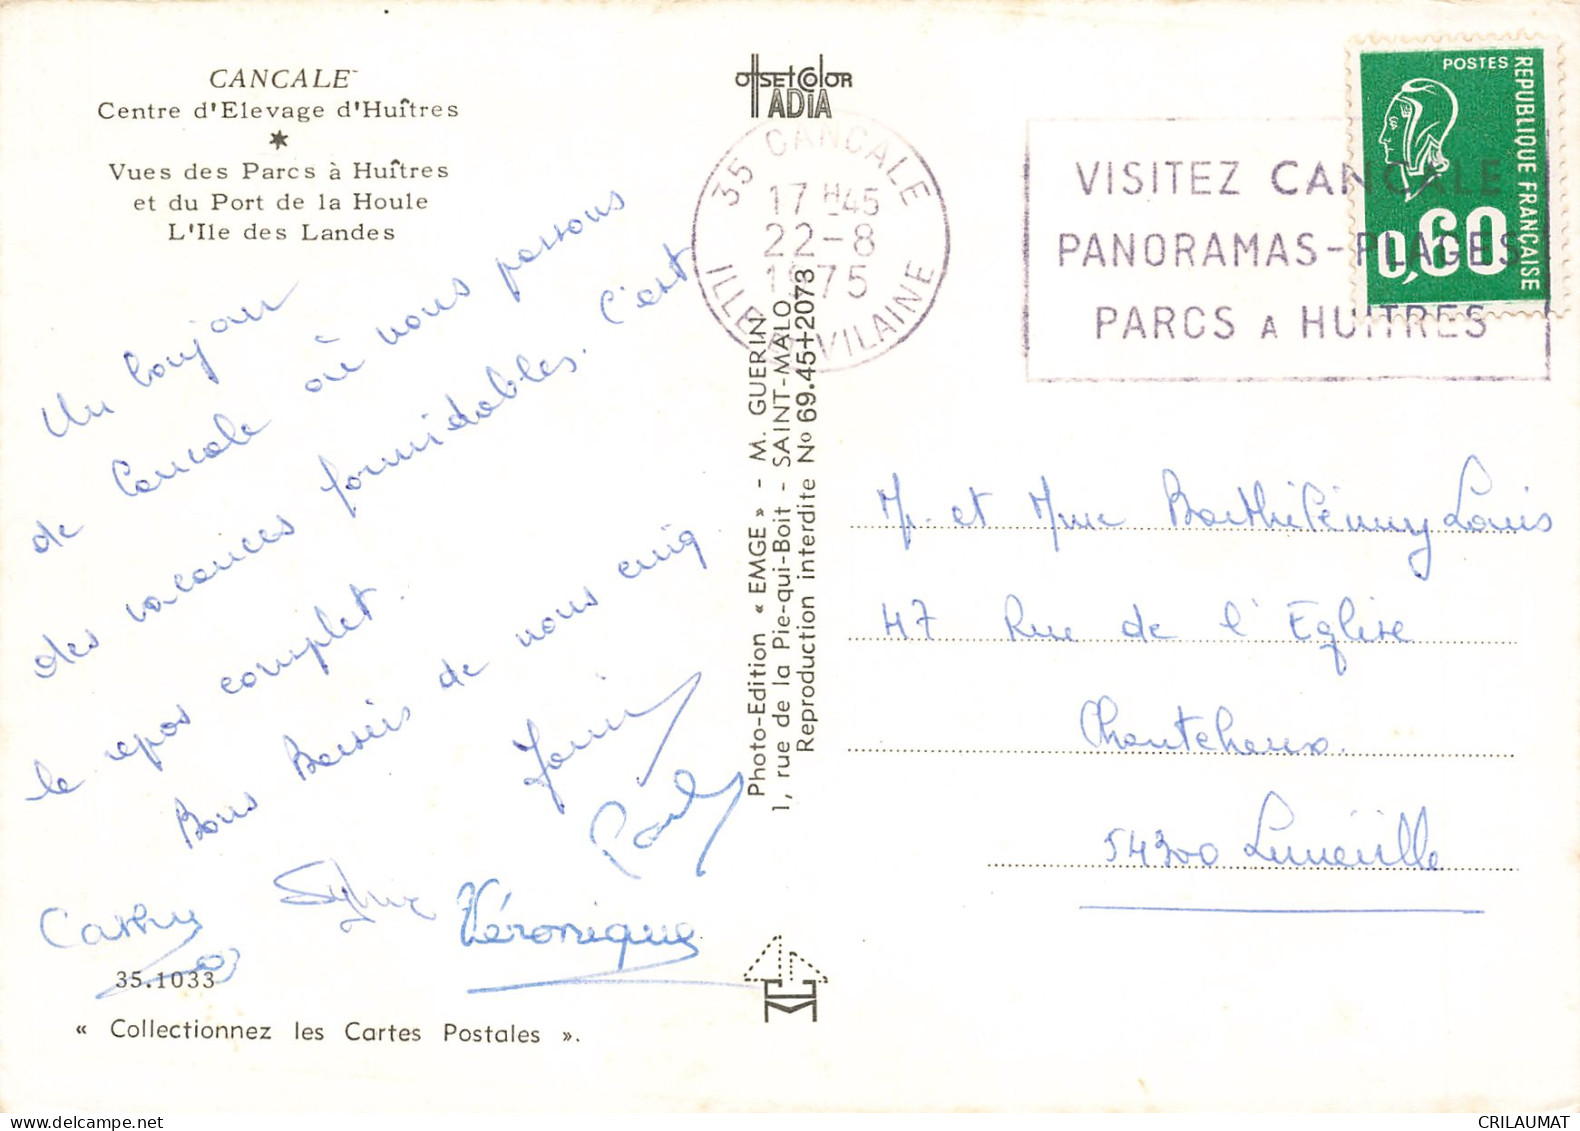 CANCALE
Centre d'Elevage d'Huîtres
Vues des Parcs à Huîtres
et du Port de la Houle
L'Ile des Landes
Un bonjour
de Cancale où nous passons
des vacances formidables. C'est
le repos complet.
Bons Baisers de nous cinq
Paul
Sylvie
Véronique
35.1033
« Collectionnez les Cartes Postales ».
OFFSET COLOR
IADIA
35 CANCALE
17 H45
22-8
1975
ILLE ET VILAINE
Photo-Edition « EMGE » - M. GUERIN
1, rue de la Pie-qui-Boit - SAINT-MALO
Reproduction interdite No 69.45+2073
VISITEZ CANCALE
PANORAMAS-PLAGES
PARCS A HUITRES
POSTES
REPUBLIQUE FRANÇAISE
0,60
Mr et Mme Barthélémy Louis
47 Rue de l'Eglise
Chanteheux.
54300 Lunéville
CRILAUMAT